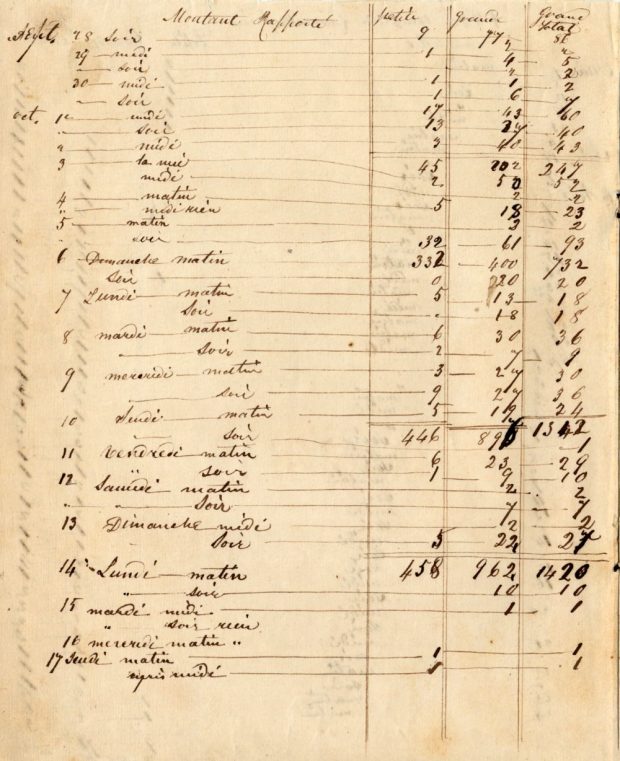 Montant Rapporté petite Grande Grand total
Sept. 28 soir 9 77 86
29 midi 2 2
— soir 1 4 5
30 midi 2 2
— soir 1 1 2
oct. 1er midi 1 6 7
" soir 17 43 60
" midi 13 27 40
3 la nuit 3 40 43
45 202 247
midi 2 50 52
4 matin 2 2
" midi rien 5 18 23
5 matin 2 2
" soir 32 61 93
6 Dimanche matin 332 400 732
soir 0 20 20
7 Lundi matin 5 13 18
soir " 18 18
8 mardi matin 6 30 36
" soir 2 7 9
9 mercredi matin 3 27 30
" soir 9 27 36
10 Jeudi matin 5 19 24
" soir 446 896 1342
11 vendredi matin 1
" soir 6 23 29
12 Samedi matin 1 9 10
" soir 2 2
13 Dimanche midi 7 7
2 2
soir 5 22 27
14 " Lundi matin 458 962 1420
" soir 10 10
15 mardi midi 1 1
" soir rien
16 mercredi matin "
17 Jeudi matin 1 1
après midi 1 1